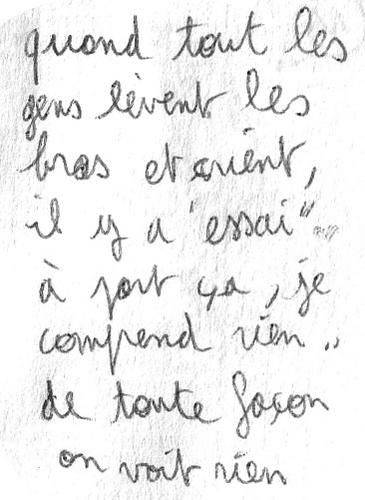 quand tout les
gens lèvent les
bras et crient,
il y a "essai"..
à part ça, je
comprend rien..
de toute façon
on voit rien